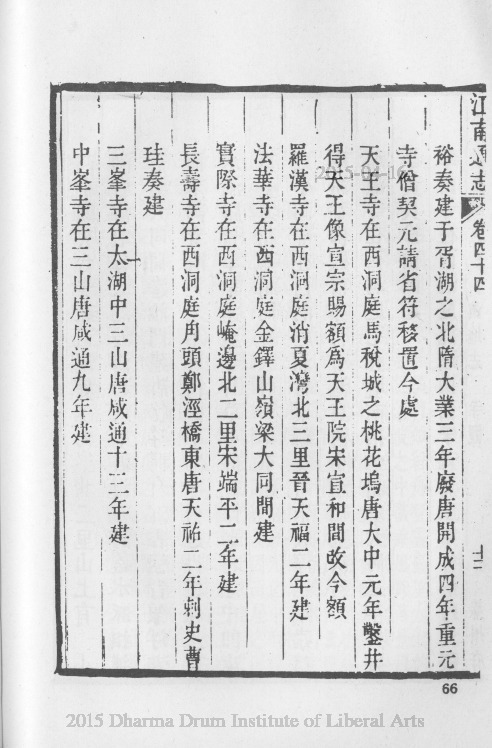 江南通志 卷四十四 十二
裕奏建于胥湖之北隋大業三年廢唐開成四年重元
寺僧契元請省符移置今處
天王寺在西洞庭馬稅城之桃花塢唐大中元年鑿井
得天王像宣宗賜額爲天王院宋宣和間改今額
羅漢寺在西洞庭消夏灣北三里晉天福二年建
法華寺在西洞庭金鐸山嶺梁大同間建
實際寺在西洞庭崦邊北二里宋端平二年建
長壽寺在西洞庭甪頭鄭涇橋東唐天祐二年刺史曹
珪奏建
三峯寺在太湖中三山唐咸通十三年建
中峯寺在三山唐咸通九年建
66
2015 Dharma Drum Institute of Liberal Arts